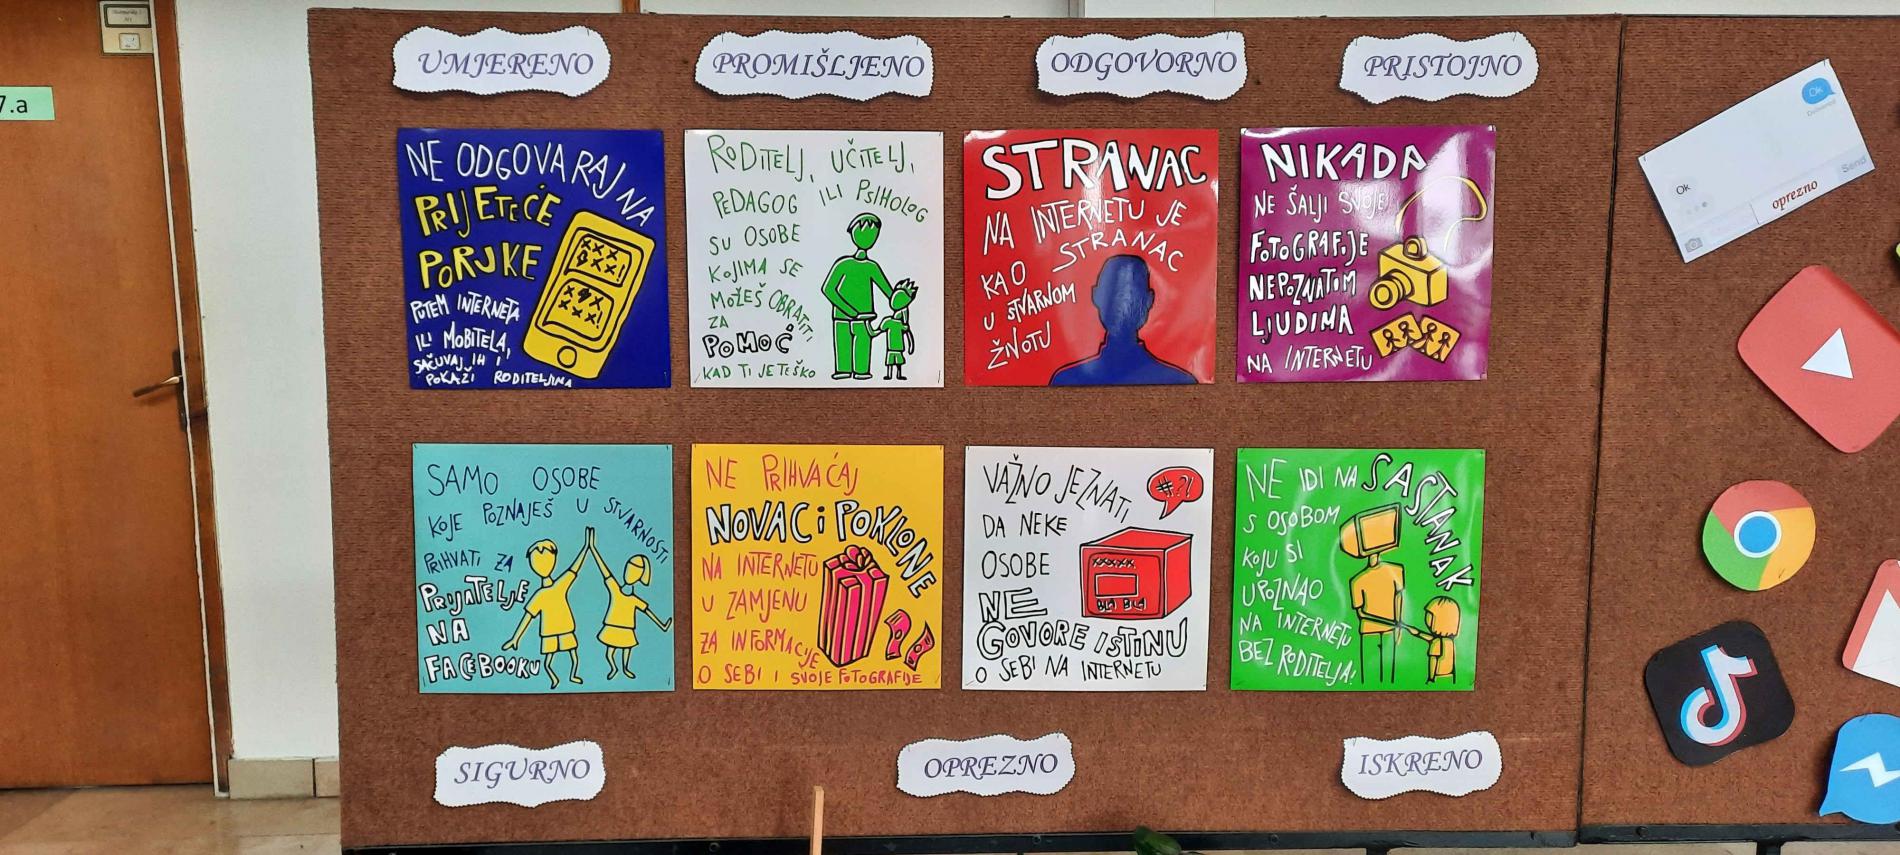 7.a
UMJERENO
PROMIŠLJENO
ODGOVORNO
PRISTOJNO
NE ODGOVARAJ NA
PRIJETEĆE
PORUKE
PUTEM INTERNETA
ILI MOBITELA,
SAČUVAJ IH I
POKAŽI RODITELJIMA
RODITELJ, UČITELJ,
PEDAGOG ILI PSIHOLOG
SU OSOBE
KOJIMA SE
MOŽEŠ OBRATITI
ZA
POMOĆ
KAD TI JE TEŠKO
STRANAC
NA INTERNETU JE
STRANAC
KAO
U STVARNOM
ŽIVOTU
NIKADA
NE ŠALJI SVOJE
FOTOGRAFIJE
NEPOZNATIM
LJUDIMA
NA INTERNETU
SAMO OSOBE
KOJE POZNAJEŠ U STVARNOSTI
PRIHVATI ZA
PRIJATELJE
NA
FACEBOOKU
NE PRIHVAĆAJ
NOVAC i POKLONE
NA INTERNETU
U ZAMJENU
ZA INFORMACIJE
O SEBI I SVOJE FOTOGRAFIJE
VAŽNO JE ZNATI
#?!
DA NEKE
OSOBE
XXXXX
BLA BLA
NE
GOVORE ISTINU
O SEBI NA INTERNETU
NE IDI NA SASTANAK
S OSOBOM
KOJU SI
UPOZNAO
NA INTERNETU
BEZ RODITELJA!
SIGURNO
OPREZNO
ISKRENO
Ok
Delivered
Ok
Send
oprezno